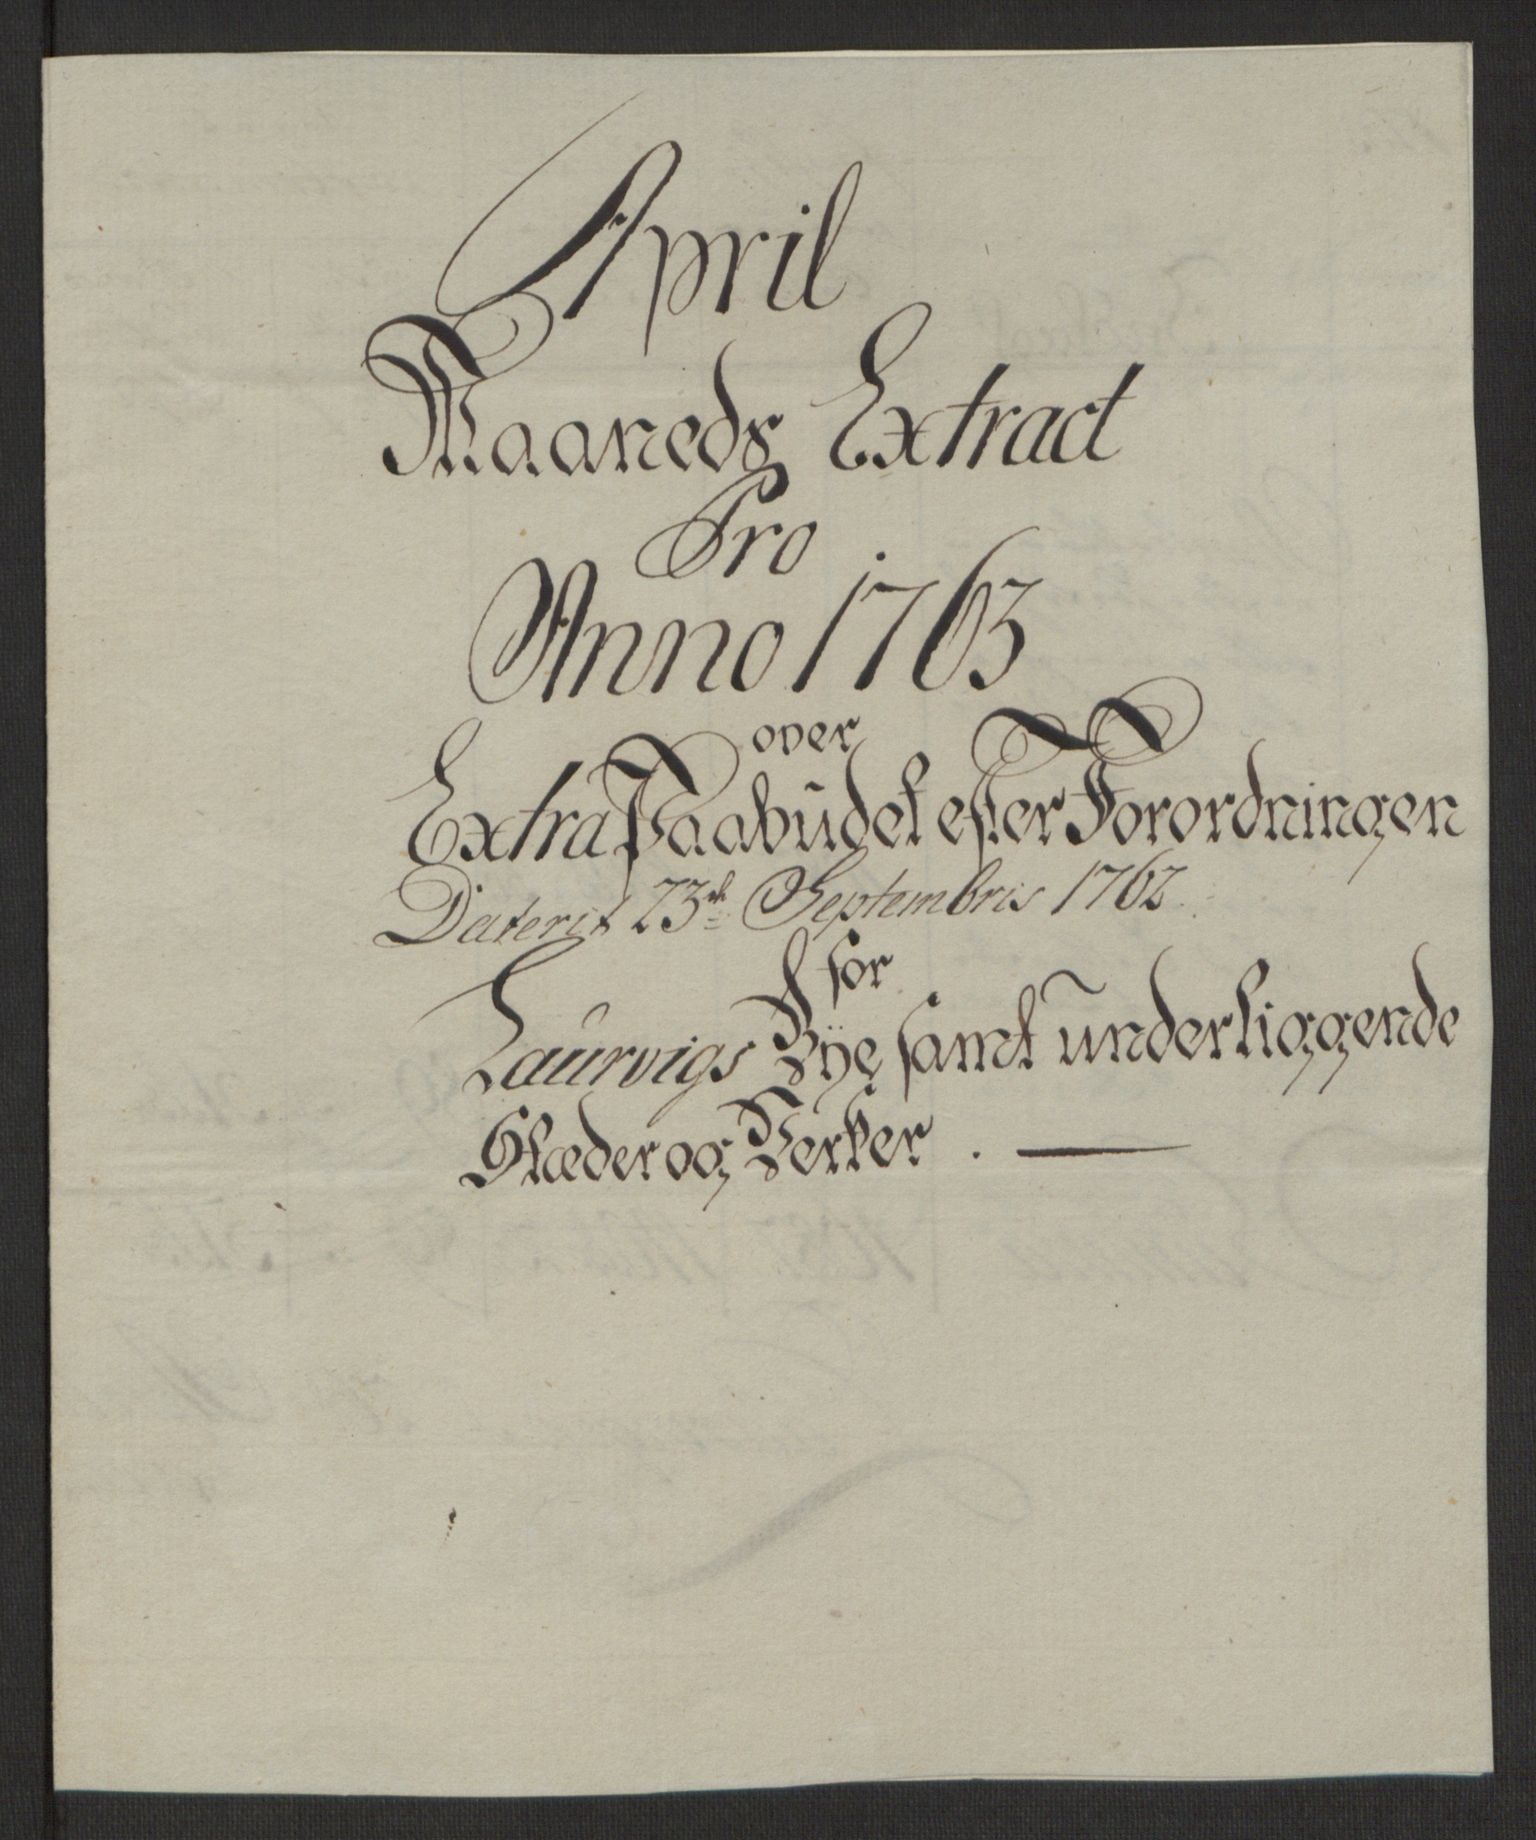 April
Maaneds Extract
Pro
Anno 1763
over
Extra Paabüdet efter Forordningen
Daterit 23de Septembris 1762
for
Laurvigs Bÿe samt underliggende
Stæder og Verker.